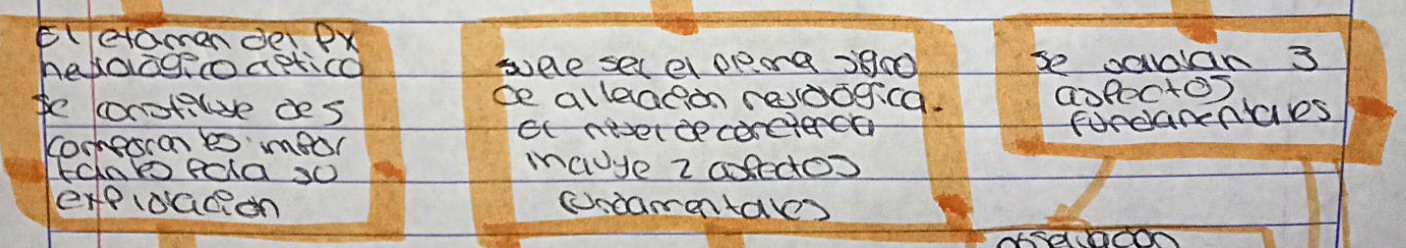 El examen del Px
neurologico critico
se constituye de 5
componentes impor
tantes para su
exploracion
suele ser el primer signo
de alteración neurologica.
El nivel de conciencia
incluye 2 aspectos
fundamentales
se evaluan 3
aspectos
fundamentales
observacion